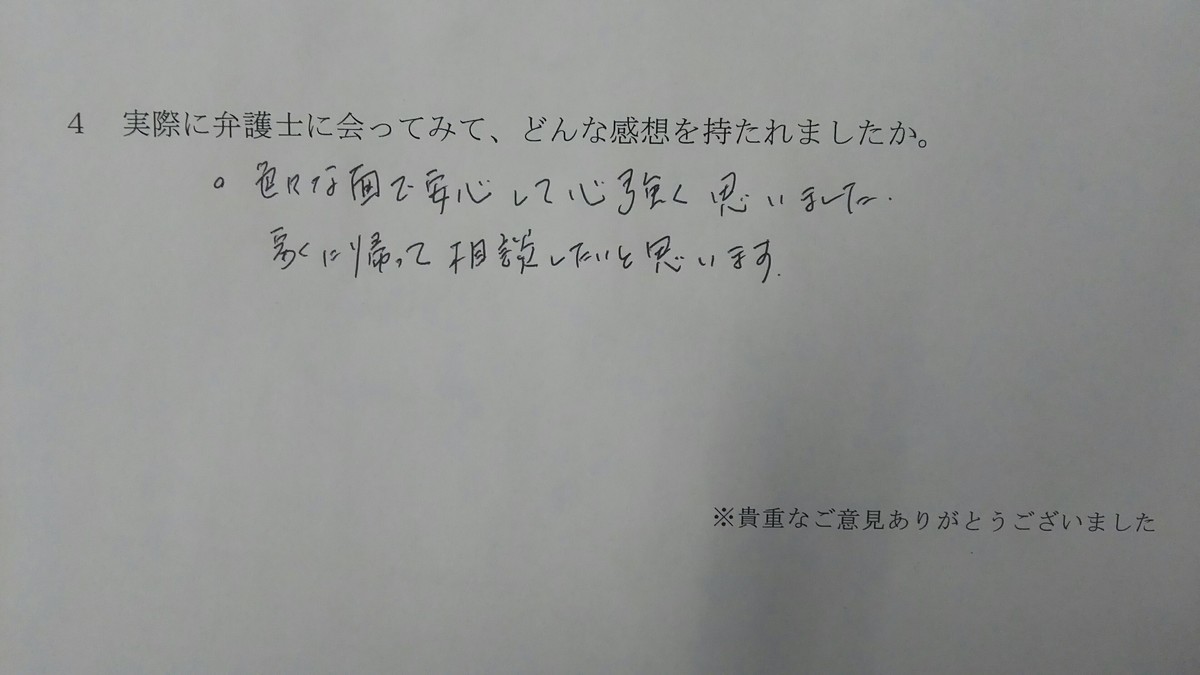 4 実際に弁護士に会ってみて、どんな感想を持たれましたか。
。色々な面で安心して心強く思いました.
に帰って相談したいと思います.
※貴重なご意見ありがとうございました